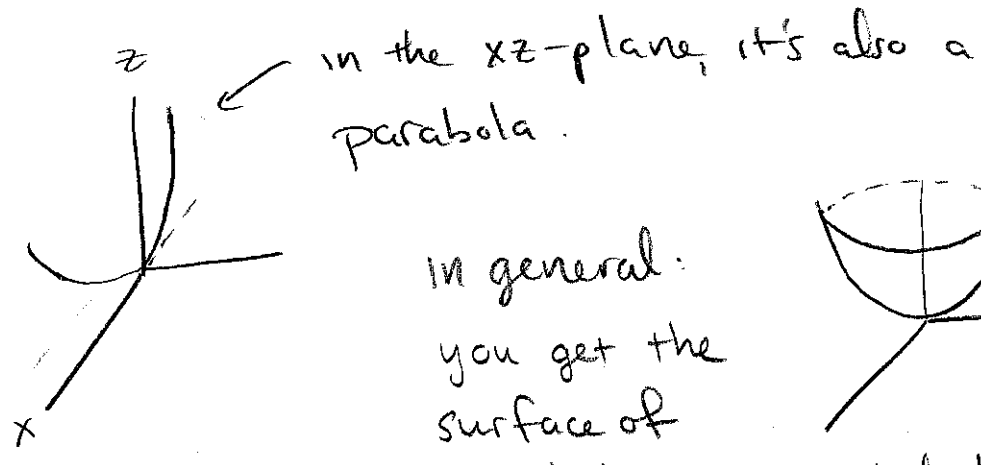 z
in the xz-plane, it's also a
parabola.
in general:
you get the
surface of
x